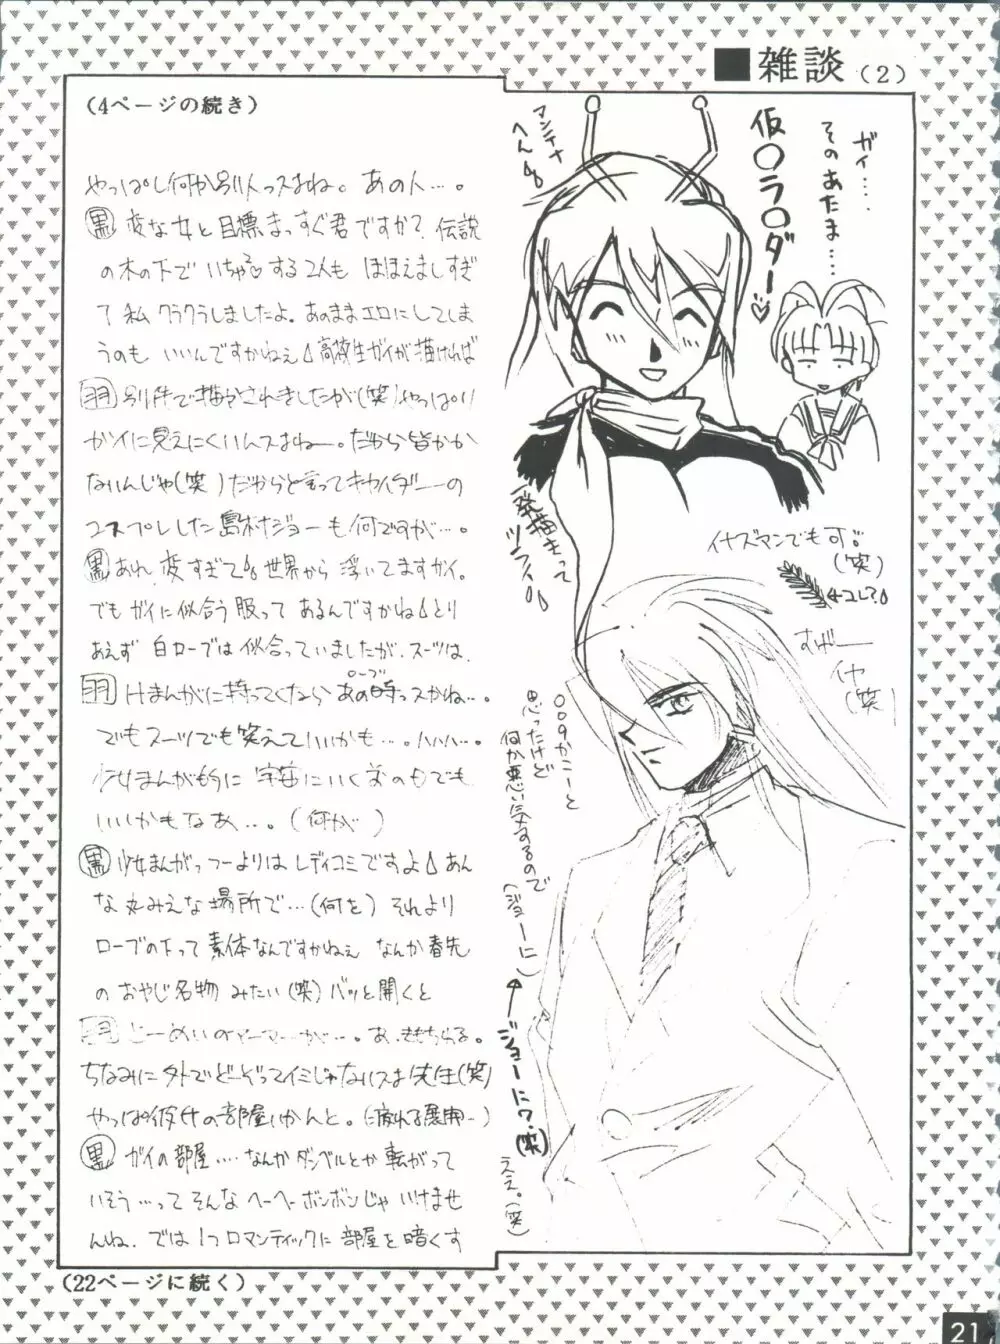 ■雑談(2)
(4ページの続き)
やっぱし何か別人っスよね。あの人…。
黒 変な女と目標まっすぐ君ですか?伝説
の木の下でいちゃつする2人も ほほえましすぎ
て私クラクラしましたよ。あのままエロにしてしま
うのも いいんですかねぇ 高校生ガイが描ければ
羽 別件で描かされましたが(笑)やっぱり
ガイに見えにくいんスよねー。だから皆かか
ないんじゃ(笑)だからと言ってキカイダーの
コスプレした島村ジョーも何ですが…。
黒 あれ、変すぎて 世界から 浮いてますガイ。
でもガイに似合う服って あるんですかね とり
あえず 白ローブは似合っていましたが、スーツは、
羽 けまんがに持ってくたらあの時っスかね…。
ローブ
でもスーツでも笑えていいかも…。ハハハ…。
少女まんがもうに 宇宙にいく
いいかもなあ…。(何が)
黒 少女まんがっつーよりは レディコミですよ あん
な丸みえな場所で…(何を) それより
ローブの下って 素体なんですかねぇ なんか春先
の おやじ名物 みたい(笑) バッと開くと
羽
ちなみに外でどーぞってイミじゃないスよ先生(笑)
やっぱ彼女の部屋いかんと。
黒 ガイの部屋…. なんか ダンベルとか 転がって
いそう…って そんな ヘーヘーボンボンじゃ いけませ
んね. では 1つ ロマンティックに 部屋を 暗くす
(22ページに続く)
アンテナ
へん
仮○ラ○ダー
ガイ….
そのあたま….
一発描きって
ツライ
イナズマンでも可
(笑)
←コレ?
すげー
イヤ
(笑)
009かニーと
思ったけど
何か悪い気するので
(ジョーに)
←ジョーに?(笑)
ええ。(笑)
21